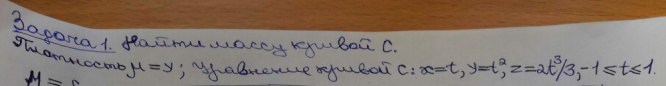 Задача 1. Найти массу кривой C.
Плотность μ = y; Уравнение кривой C: x=t, y=t², z=2t³/3, -1≤t≤1.
M =